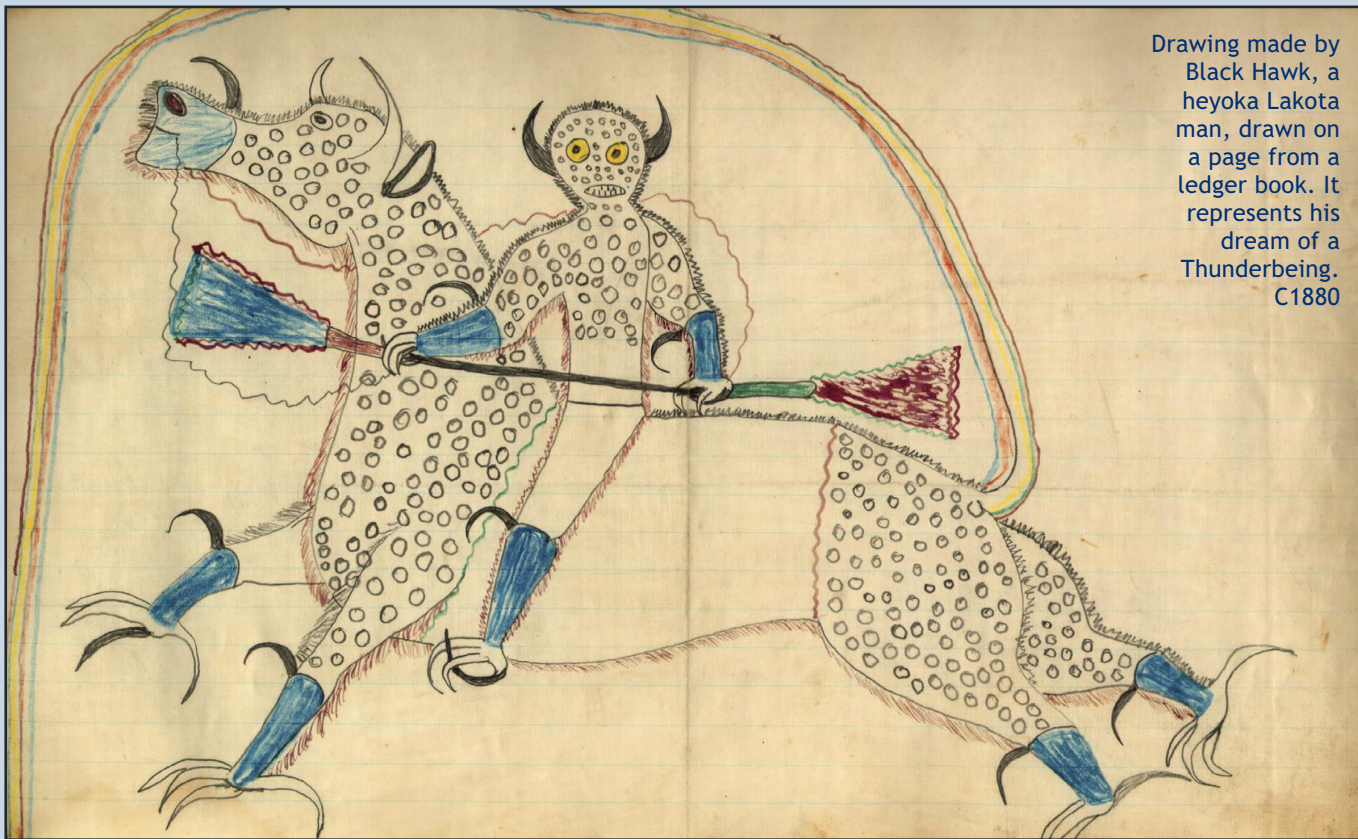 Drawing made by
Black Hawk, a
heyoka Lakota
man, drawn on
a page from a
ledger book. It
represents his
dream of a
Thunderbeing.
C1880